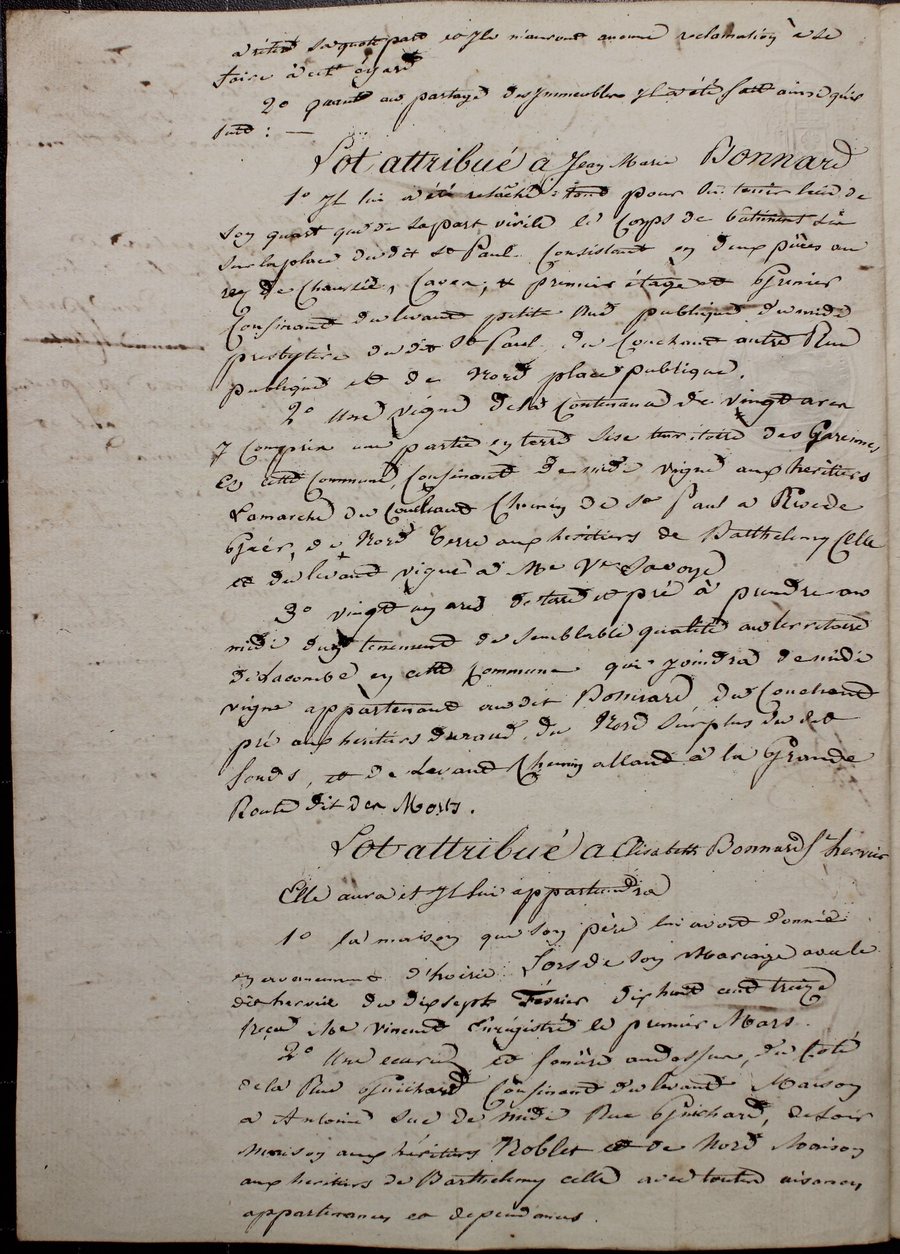 a retiré sa quote part et Ils n'auront aucune reclamation à se
faire à cet égard
2° quant au partage des Immeubles Il a été fait ainsi qu'il
suit : —
Lot attribué a Jean Marie Bonnard
1° Il lui a été relâché en fond pour lui tenir lieu de
son quart que de sa part virile le Corps de batiment sis
sur la place du dit St Paul Consistant en deux pièces au
rez de Chaussée, Caves, & premier étage et Grenier
Confinant du levant petite rue publique du midi
presbytère du dit St Paul du Couchant autre Rue
publique et de Nord place publique.
2° Une vigne de la Contenance de vingt ares
y Compris une partie en terre sise territoire des Garennes
en cette Commune, Confinant de midi vigne aux heritiers
Lamarche du Couchant Chemin de St Paul a Rive de
Gier, de Nord Terre aux heritiers de Barthelemy Celle
et du levant vigne a Me Ve Savoye
3° vingt un ares de terre et pré à prendre au
midi d'un tenement de semblable qualité au territoire
de Lacombe en cette Commune qui joindra de midi
vigne appartenant au dit Bonnard, du Couchant
pré aux heritiers durand, du Nord surplus du dit
fonds, et de Levant Chemin allant à la Grande
Route dit des Morts.
Lot attribué a Elisabeth Bonnard fe hervier
Elle aura et Il lui appartiendra
1° la maison que son père lui avait donnée
en avancement d'hoirie Lors de son Mariage avec le
dit hervier du dix sept Février dix huit cent treize
Reçu Me Vincent Enregistré le premier Mars.
2° Une ecurie et fenière au dessus, du Coté
de la Rue Guichard Confinant du levant Maison
a Antoine Sue de midi Rue Guichard, de soir
Maison aux héritiers Noblet et de Nord Maison
aux heritiers de Barthelemy celle avec toutes aisances
appartenances et dependances.